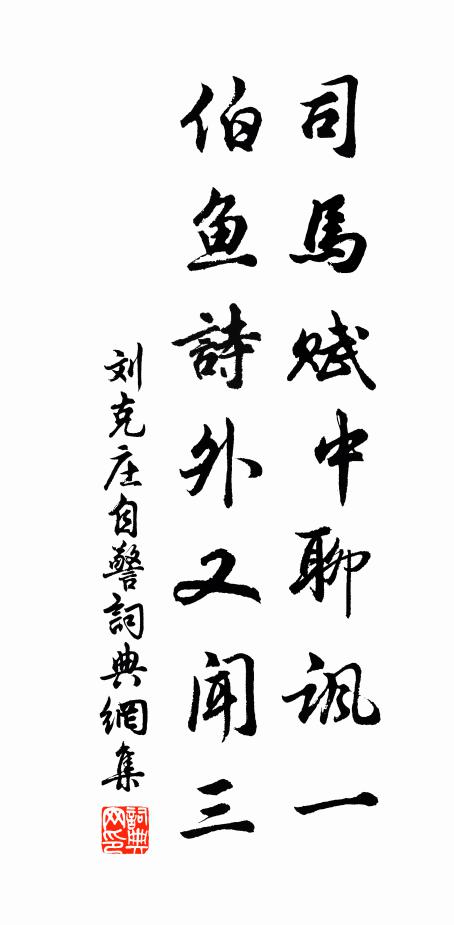 司馬赋中聊諷一
伯鱼詩外又闻三
刘克庄自警詞典網集
詞典网印